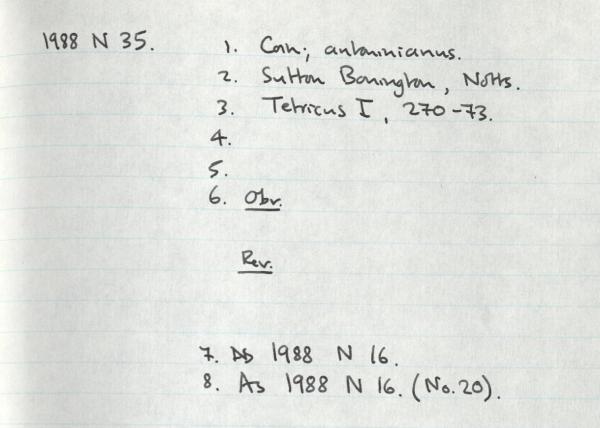 1988 N 35. 1. Coin; antoninianus.
2. Sutton Bonington, Notts.
3. Tetricus I, 270-73.
4.
5.
6. Obv.
Rev.
7. As 1988 N 16.
8. As 1988 N 16. (No. 20).